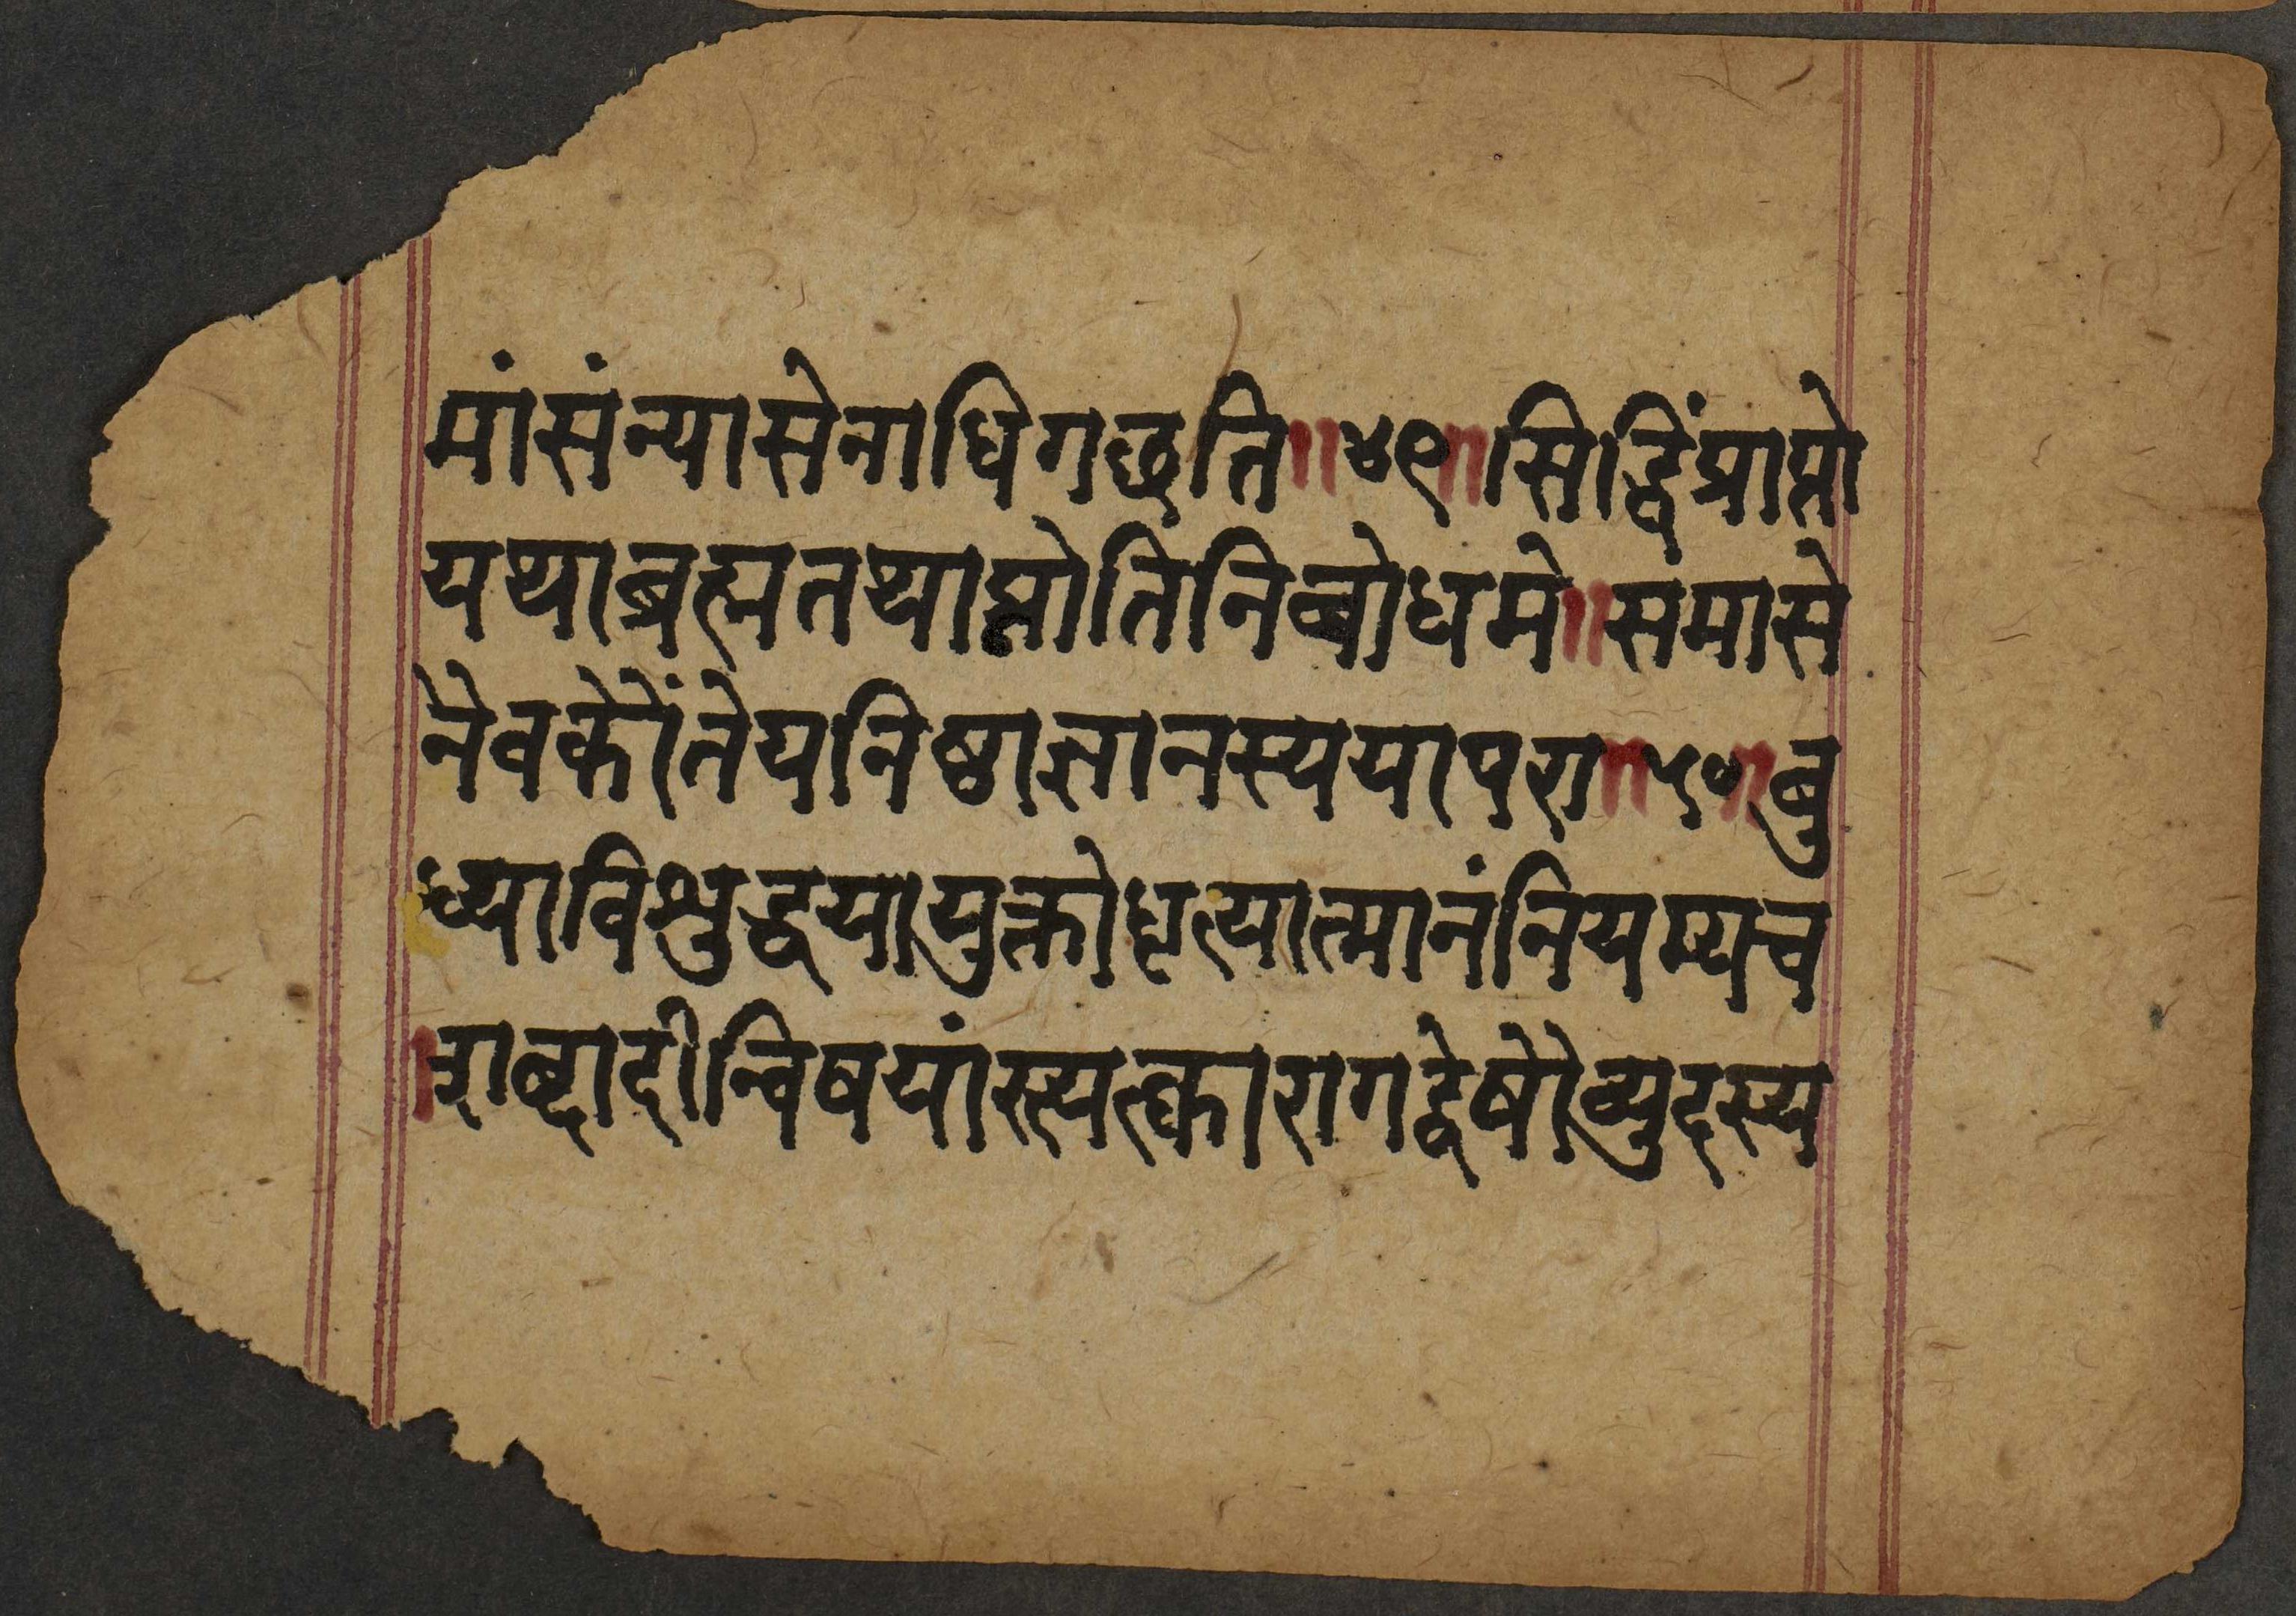 मांसंन्यासेनाधिगछति॥४९॥सिद्धिंप्राप्तो
यथाब्रह्मतथाप्नोतिंनिबोधमे॥समासे
नैवकौंतेयनिष्ठाज्ञानस्ययापरा॥५०॥बु
ध्याविशुद्धयायुक्तोधृत्यात्मानंनियम्यच
।शब्दादीन्विषयांस्त्यत्क्वारागद्वेषौव्युदस्य